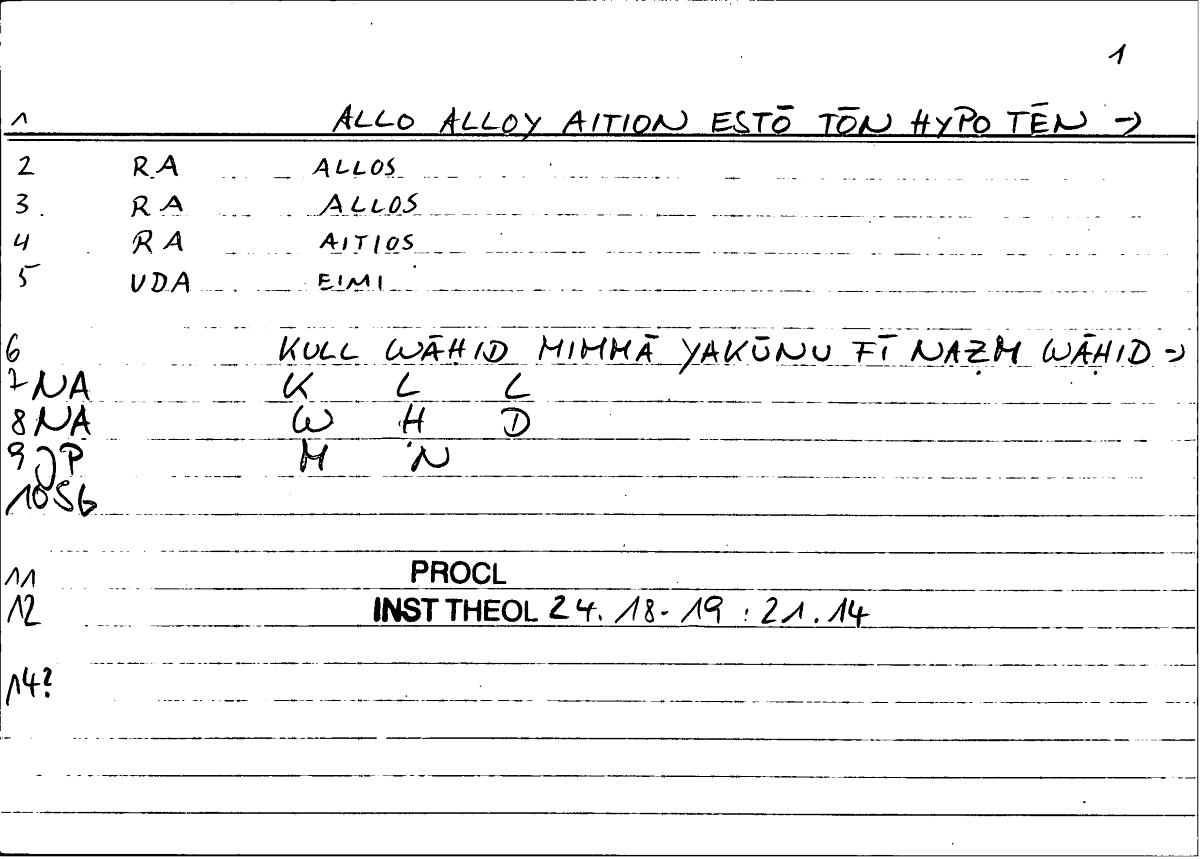 1
1 ALLO ALLOY AITION ESTŌ TŌN HYPO TĒN →
2 RA ALLOS
3. RA ALLOS
4 RA AITIOS
5 VDA EIMI
6 KULL WĀḤID MIMMĀ YAKŪNU FĪ NAẒM WĀḤID →
7 NA K L L
8 NA W Ḥ D
9 JP M N
10 SG
11 PROCL
12 INST THEOL 24. 18-19 : 21.14
14?